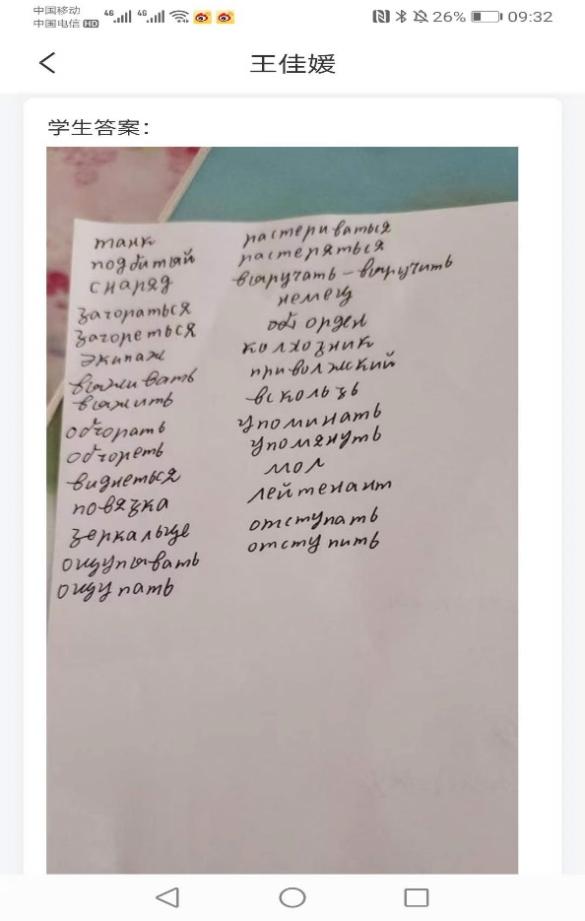 中国移动
中国电信 HD 4G 4G 26% 09:32
王佳媛
学生答案：
танк
подбитый
снаряд
загораться
загореться
экипаж
выживать
выжить
обгорать
обгореть
виднеться
повязка
зеркальце
ощупывать
ощупать
растериваться
растеряться
выручать – выручить
немец
орден
колхозник
приволжский
вскользь
упоминать
упомянуть
мол
лейтенант
отступать
отступить